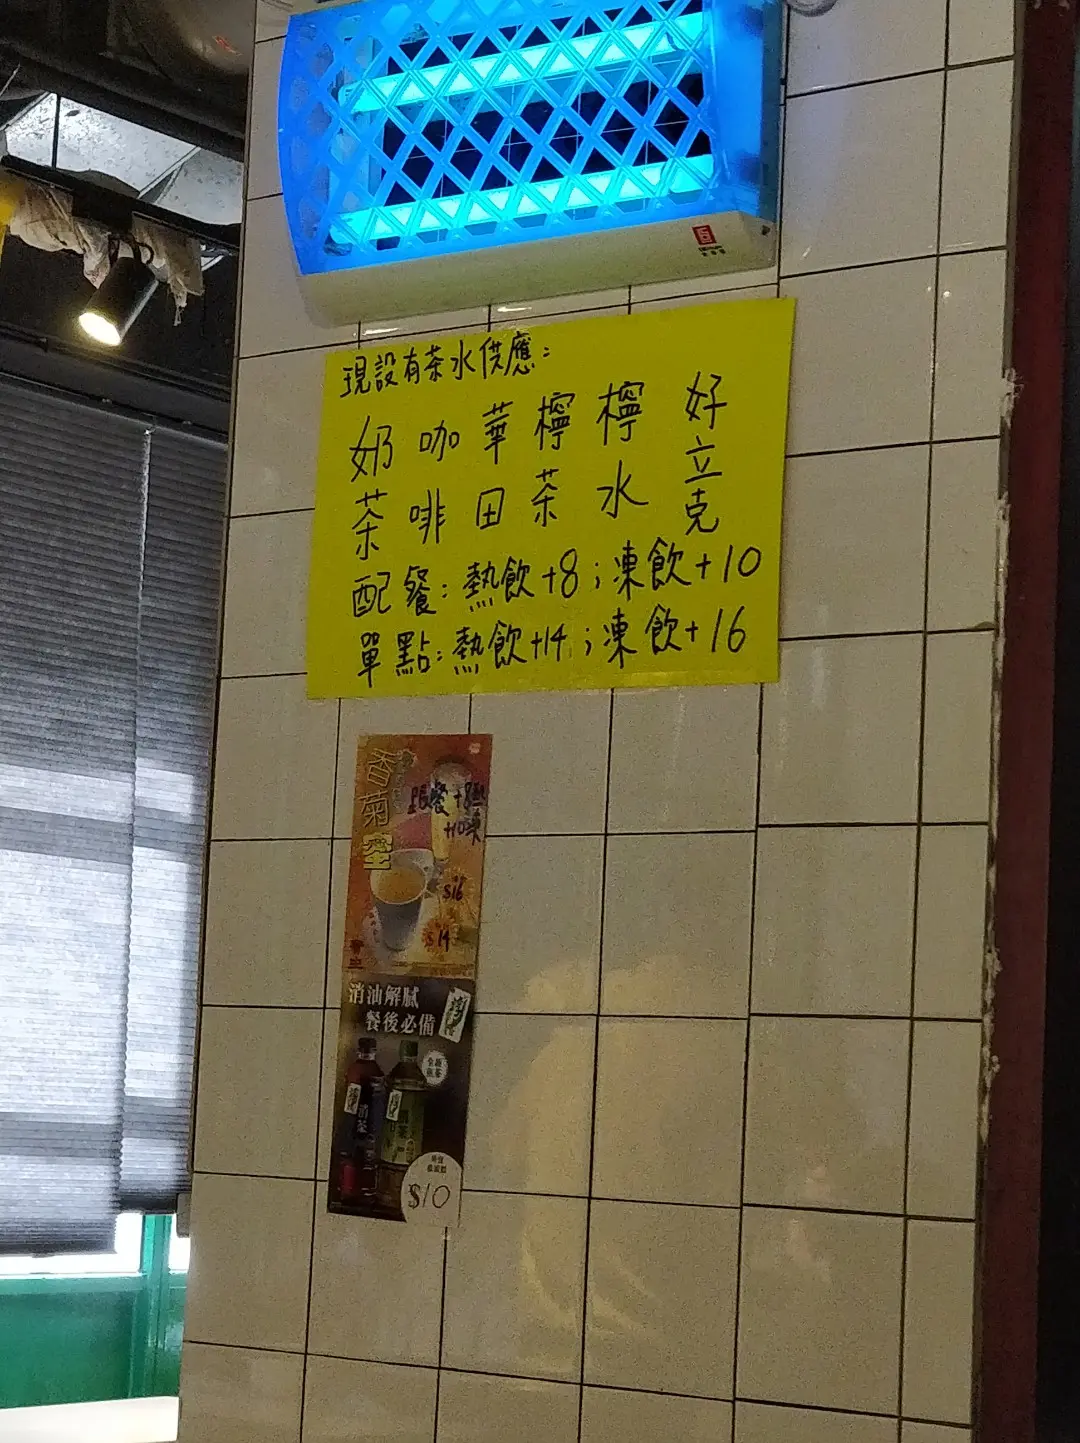 現設有茶水供應：
奶茶 咖啡 華田 檸茶 檸水 好立克
配餐：熱飲+8；凍飲+10
單點：熱飲+14；凍飲+16
香菊蜜
跟餐+8熱
+10凍
$16
$14
消油解膩
餐後必備
$10